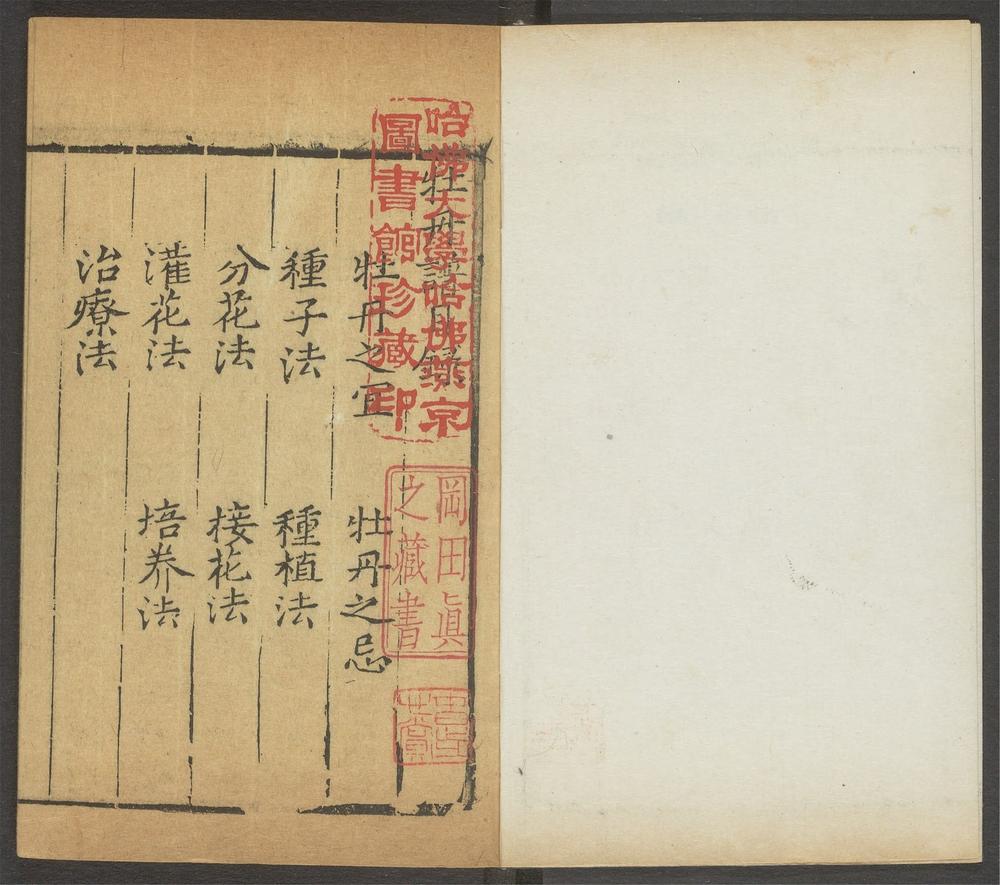 牡丹譜目錄
牡丹之宜 牡丹之忌
種子法 種植法
分花法 接花法
灌花法 培养法
治療法
哈佛大學哈佛燕京
圖書館珍藏印
岡田眞
之藏書